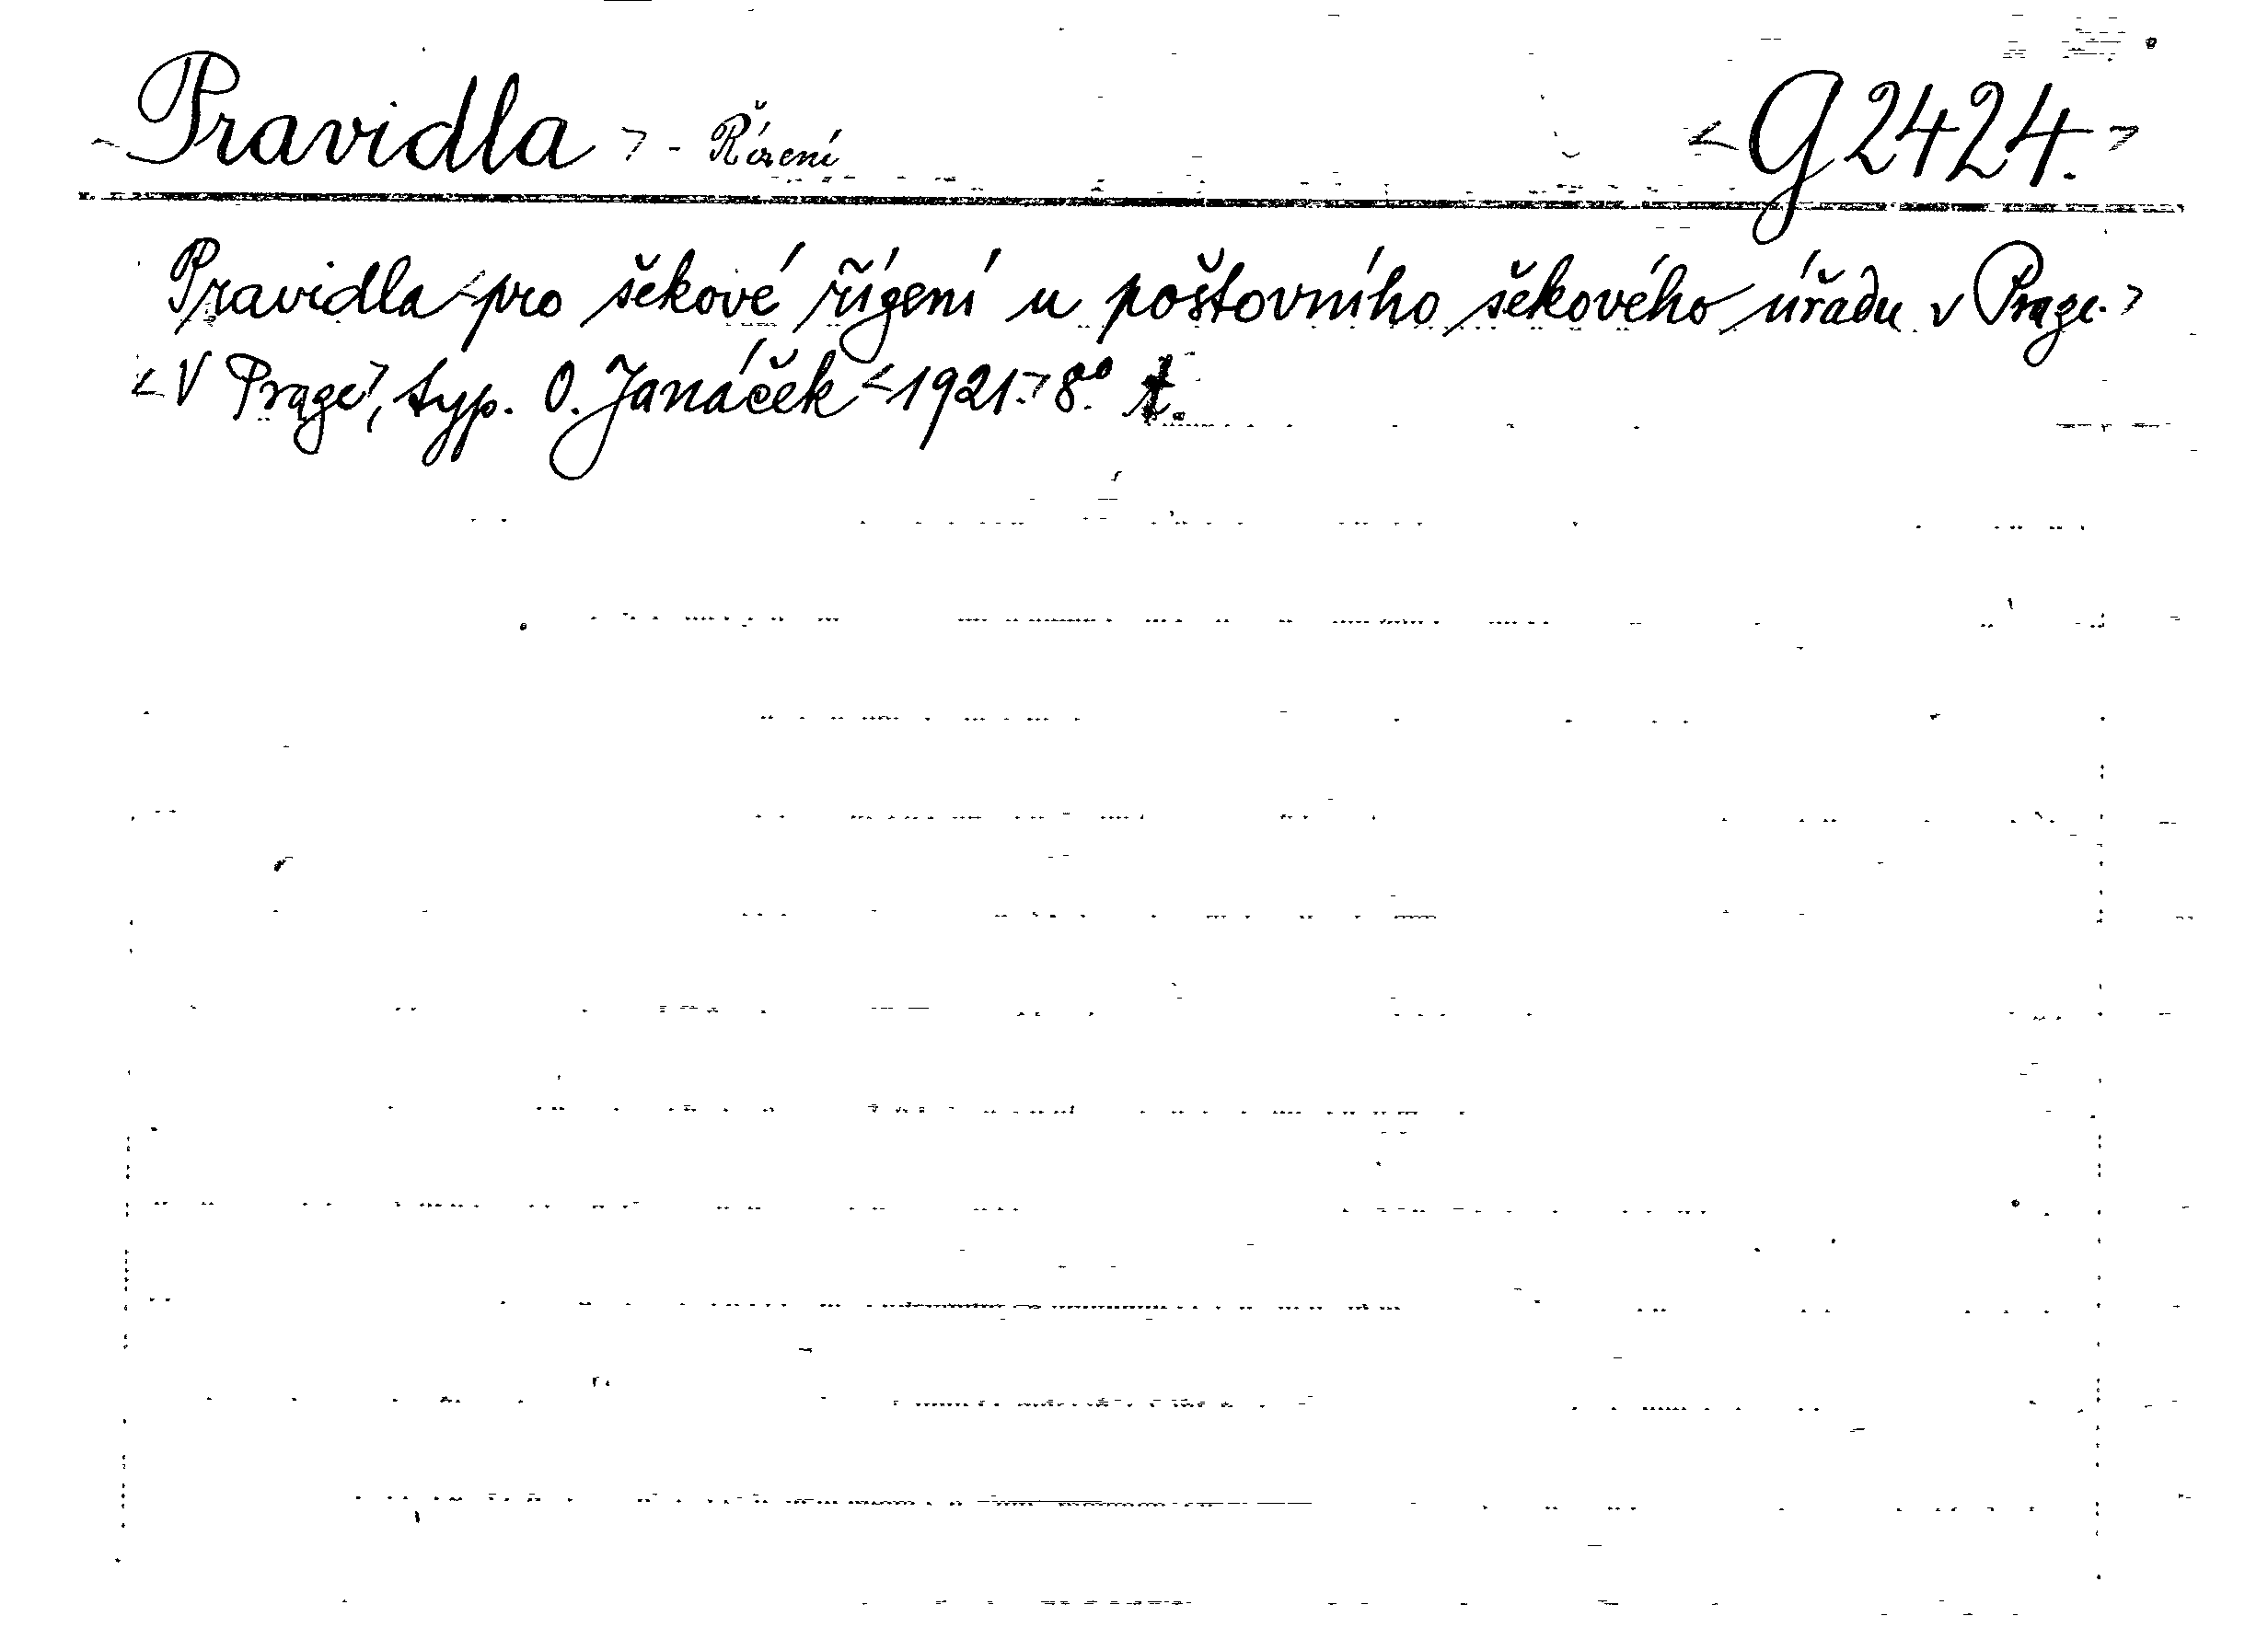 <Pravidla> - Řízení <G 2424.>
Pravidla <pro šekové řízení u poštovního šekového úřadu v Praze.>
<V Praze>, typ. O. Janáček <1921.> 8°